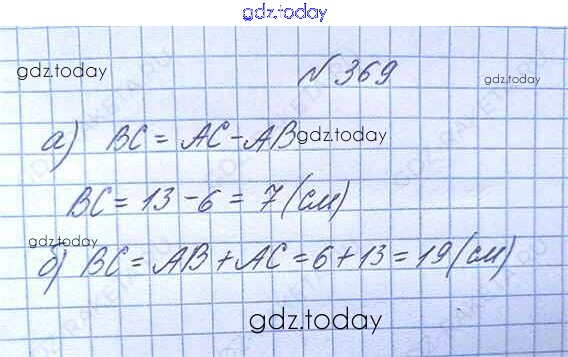 gdz.today
gdz.today
№369
gdz.today
а) BC = AC - AB
gdz.today
BC = 13 - 6 = 7 (см)
gdz.today
б) BC = AB + AC = 6 + 13 = 19 (см)
gdz.today